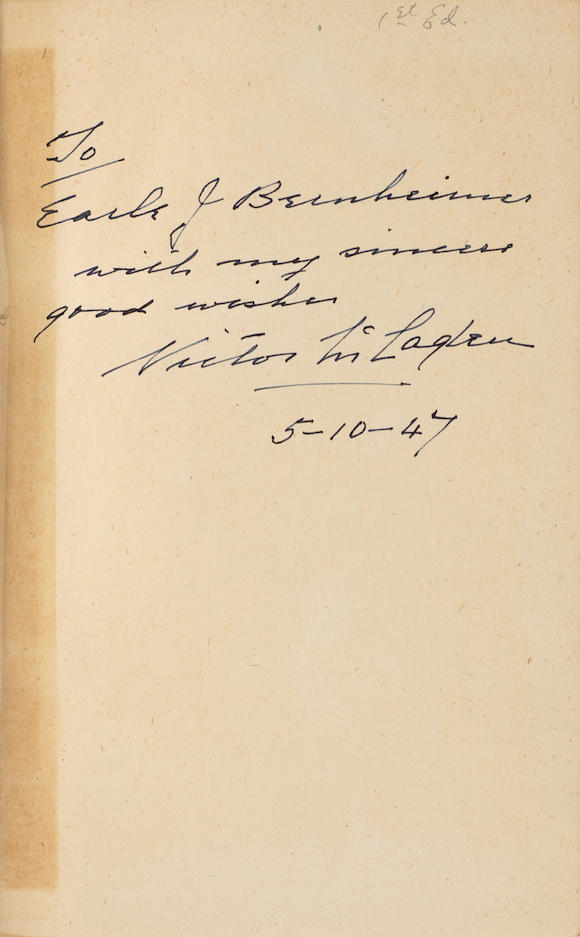 1st Ed.
To
Earle J Bernheimer
with my sincere
good wishes
Victor McLaglen
5-10-47